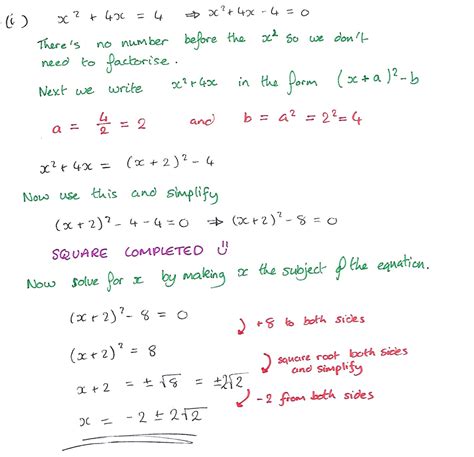 (i) x² + 4x = 4 ⇒ x² + 4x - 4 = 0
There's no number before the x² so we don't
need to factorise.
Next we write x² + 4x in the form (x + a)² - b
a = 4/2 = 2 and b = a² = 2² = 4
x² + 4x = (x + 2)² - 4
Now use this and simplify
(x + 2)² - 4 - 4 = 0 ⇒ (x + 2)² - 8 = 0
SQUARE COMPLETED
Now solve for x by making x the subject of the equation.
(x + 2)² - 8 = 0
+ 8 to both sides
(x + 2)² = 8
square root both sides
and simplify
x + 2 = ± √8 = ± 2√2
- 2 from both sides
x = - 2 ± 2√2